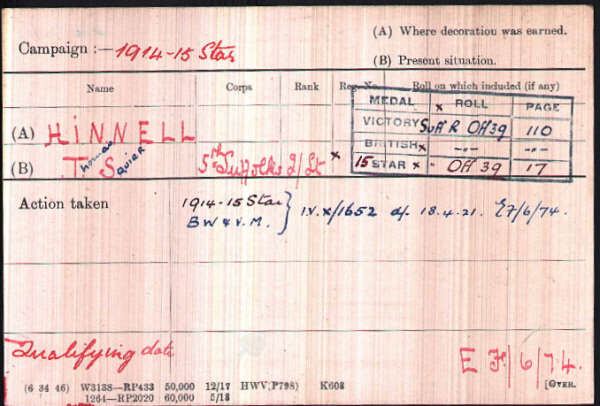 (A) Where decoration was earned.
Campaign :— 1914-15 Star
(B) Present situation.
Name Corps Rank Reg. No. Roll on which included (if any)
MEDAL × ROLL PAGE
(A) HINNELL VICTORY Suff R Off 39 110
BRITISH × -„- -„-
(B) Thomas Squier 5th Suffolks 2/Lt × 15 STAR × " Off 39 17
Action taken 1914-15 Star } IV.X/1652 d/. 18.4.21. E7/6/74.
B W & V. M.
Qualifying date E F/6/74.
(6 34 46) W3138—RP433 50,000 12/17 HWV(P798) K608 [OVER.
1264—RP2020 60,000 5/18